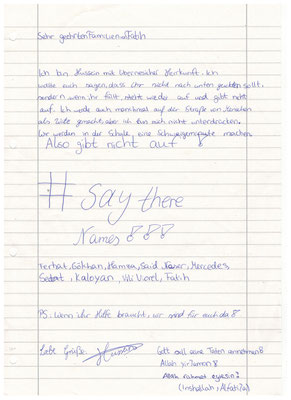 Sehr geehrten Familien u. Fatih
Ich bin Hussein mit libanesischer Herkunft. Ich
wollte euch sagen, dass ihr nicht nach unten gucken sollt,
sondern wenn ihr fällt, steht wieder auf und gibt nicht
auf. Ich werde auch manchmal auf der Straße von Menschen
als gemacht, aber ich lass mich nicht unterdrücken.
Wir werden in der Schule, eine Schweigeminute machen.
Also gibt nicht auf
#say there
Names
Ferhat, Gökhan, Hamza, Said Nesar, Mercedes,
Sedat, Kaloyan, Vili Viorel, Fatih
PS: Wenn ihr Hilfe braucht, wir sind für euch da
Liebe Grüße
Gott soll seine Taten annehmen
Allah
Allah rahmet eyesin
(Inshallah, )